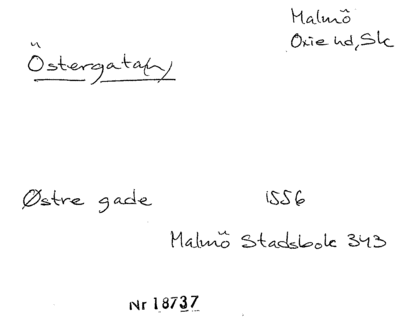 Malmö
Oxie hd, Sk
Östergata(n)
Østre gade 1556
Malmö Stadsbok 343
Nr 18737